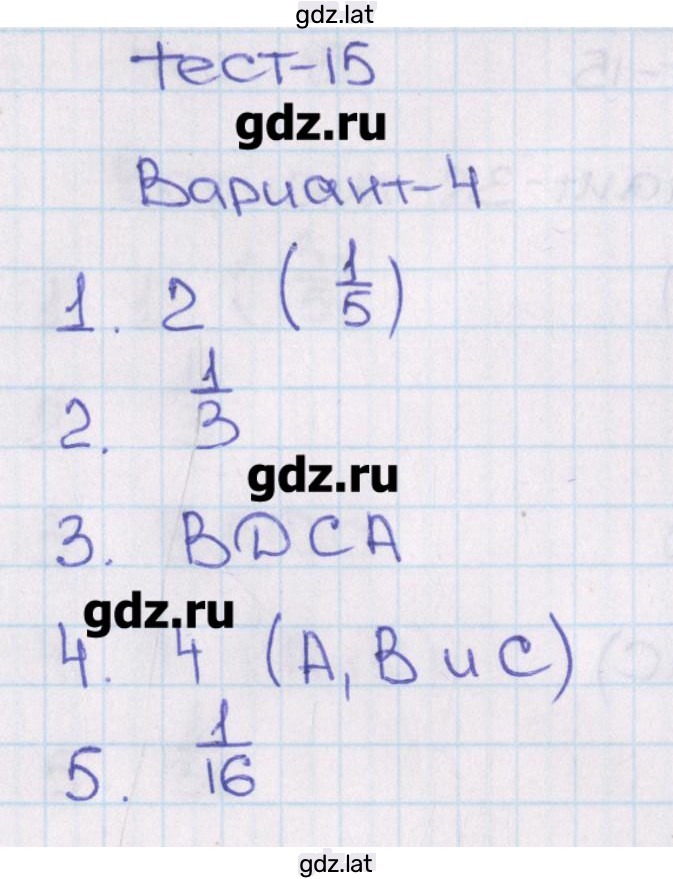 gdz.lat
тест-15
gdz.ru
Вариант-4
1. 2 (1/5)
2. 1/3
gdz.ru
3. BDCA
gdz.ru
4. 4 (А, В и С)
5. 1/16
gdz.lat